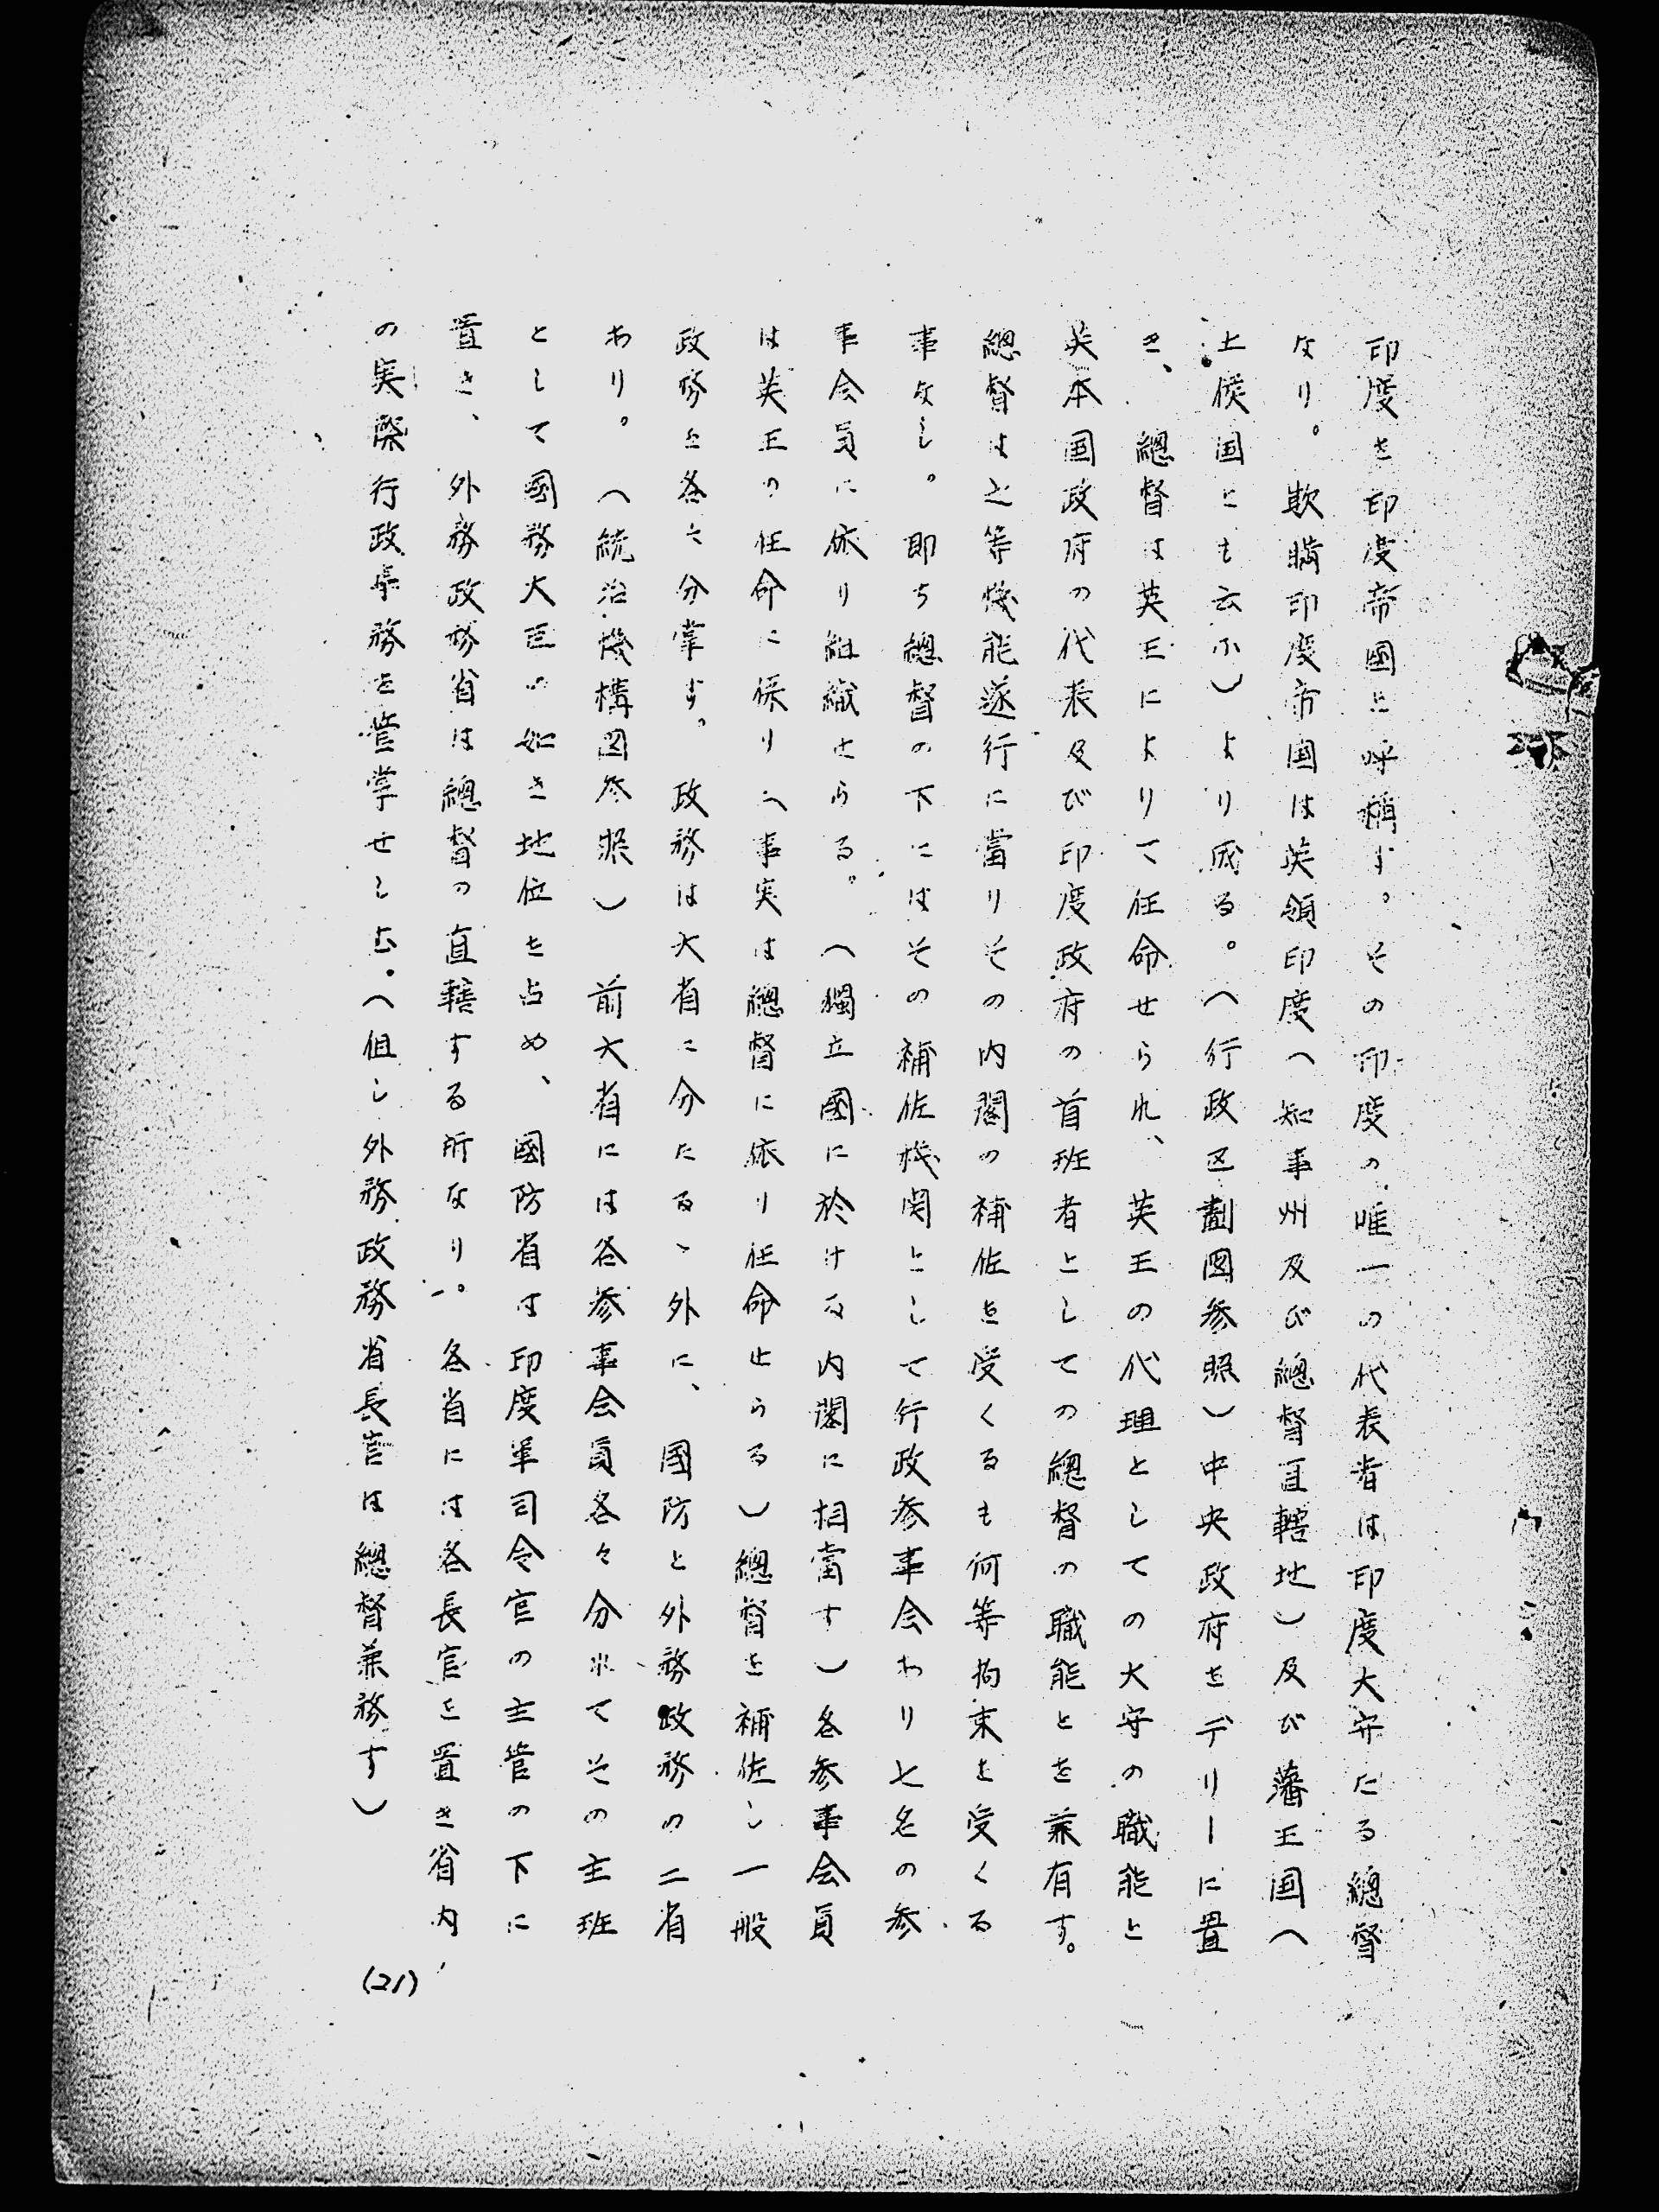 印度を印度帝國と呼稱す。その印度の唯一の代表者は印度大守たる總督
なり。印度帝国は英領印度（知事州及び總督直轄地）及び藩王国（
土侯国とも云ふ）より成る。（行政区劃図参照）中央政府をデリーに置
き、總督は英王によりて任命せられ、英王の代理としての大守の職能と
英本国政府の代表及び印度政府の首班者としての總督の職能とを兼有す。
總督は之等機能遂行に當りその内閣の補佐を受くるも何等拘束を受くる
事なし。即ち總督の下にはその補佐機関として行政参事会わり七名の参
事会員に依り組織せらる。（獨立國に於ける内閣に相當す）各参事会員
は英王の任命に係り（事実は總督に依り任命せらる）總督を補佐し一般
政務を各々分掌す。政務は大省に分たるゝ外に、國防と外務政務の二省
あり。（統治機構図参照）前大省には各参事会員各々分れてその主班
として國務大臣の如き地位を占め、國防省は印度軍司令官の主管の下に
置き、外務政務省は總督の直轄する所なり。各省には各長官を置き省内
の実際行政事務を管掌せしむ。（但し外務政務省長官は總督兼務す）
(21)